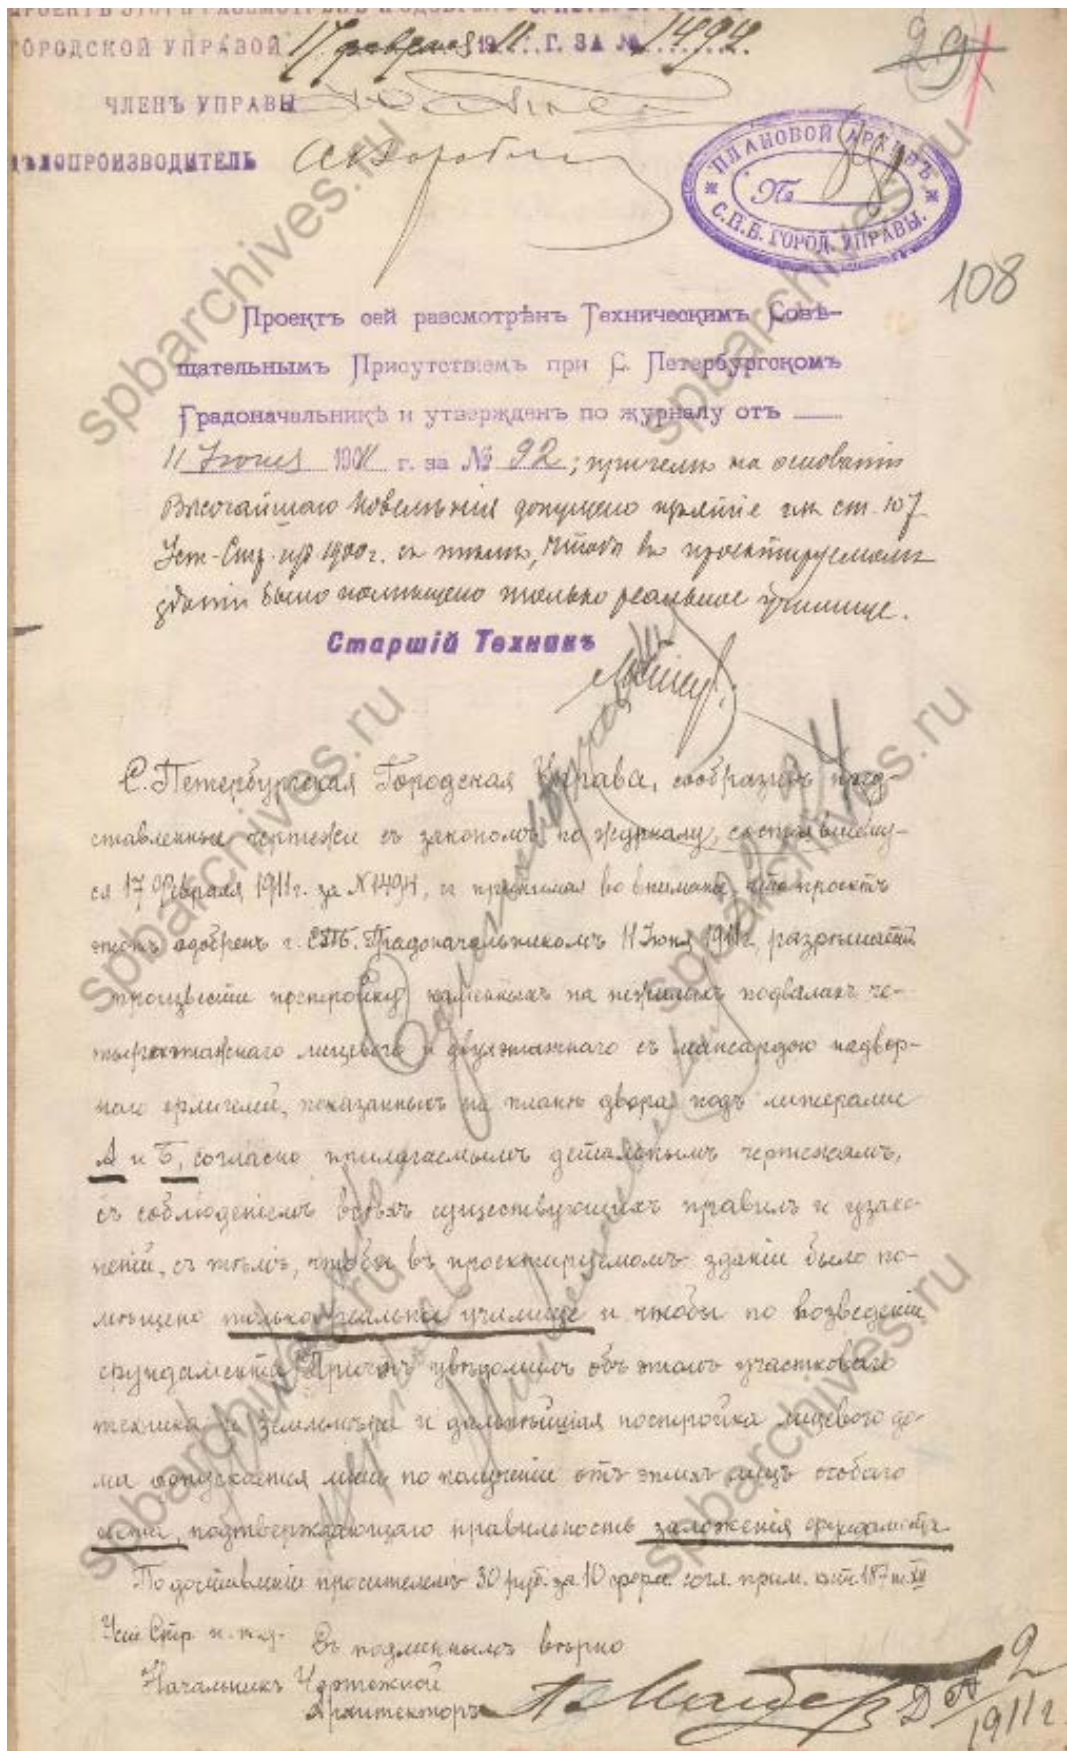 ПРОЕКТЪ ЭТОТЪ РАЗСМОТРѢНЪ И ОДОБРЕНЪ С. ПЕТЕРБУРГСКОЮ
ГОРОДСКОЙ УПРАВОЙ 17 февраля 1911 Г. ЗА № 1494.
29
ЧЛЕНЪ УПРАВЫ
ДѢЛОПРОИЗВОДИТЕЛЬ
ПЛАНОВОЙ АРХИВЪ
№
С.П.Б. ГОРОД. УПРАВЫ.
108
Проектъ сей разсмотрѣнъ Техническимъ Совѣ-
щательнымъ Присутствіемъ при С. Петербургскомъ
Градоначальникѣ и утвержденъ по журналу отъ
11 Іюня 1911 г. за № 92; причемъ на основаніи
Высочайшаго повелѣнія допущено изъятіе изъ ст. 107
Уст. Стр. изд. 1900 г. съ тѣмъ, чтобы въ проектируемомъ
зданіи было помѣщено только реальное училище.
Старшій Техникъ
С. Петербургская Городская Управа, сообразивъ пред-
ставленные чертежи съ закономъ по журналу, состоявшему-
ся 17 Февраля 1911 г. за N 1494, и принимая во вниманіе, что проектъ
этотъ одобренъ г. СПБ. Градоначальникомъ 11 Іюня 1911 г., разрѣшаетъ
произвести постройку каменныхъ на нежилыхъ подвалахъ че-
тырехэтажнаго лицевого и двухэтажнаго съ мансардою надвор-
наго флигелей, показанныхъ на планѣ двора подъ литерами
А и Б, согласно прилагаемымъ детальнымъ чертежамъ,
съ соблюденіемъ всѣхъ существующихъ правилъ и узако-
неній, съ тѣмъ, чтобы въ проектируемомъ зданіи было по-
мѣщено только реальное училище и чтобы по возведеніи
фундамента увѣдомилъ объ этомъ участковаго
техника и землемѣра и дальнѣйшая постройка лицевого до-
ма допускается лишь по полученіи отъ этихъ лицъ особаго
акта, подтверждающаго правильность заложенія фундамента.
По доставленіи просителемъ 30 руб. за 10 форм. согл. прим. к ст. 187 т. XII
Уст. Стр.
Съ подлиннымъ вѣрно
Начальникъ Чертежной
Архитекторъ
Д 2
1911 г.
spbarchives.ru
spbarchives.ru
spbarchives.ru
spbarchives.ru
spbarchives.ru
spbarchives.ru